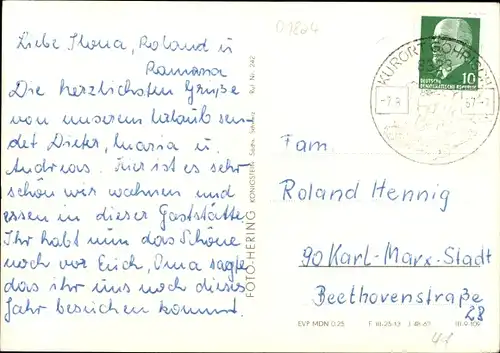 01804
Liebe Ilona, Roland u
Ramana
Die herzlichsten Grüße
von unserem Urlaub sen-
det Dieter, Maria u
Andreas. Hier ist es sehr
schön wir wohnen und
essen in dieser Gaststätte
Ihr habt nun das Schöne
noch vor Euch, Oma sagte
das ihr uns noch dieses
Jahr besuchen kommt.
FOTO-HERING KÖNIGSTEIN Ruf Nr. 242
KURORT GOHRISCH
8308
DEUTSCHE
DEMOKRATISCHE REPUBLIK
10
Fam.
Roland Hennig
90 Karl-Marx-Stadt
Beethovenstraße
28
EVP MDN 0.25